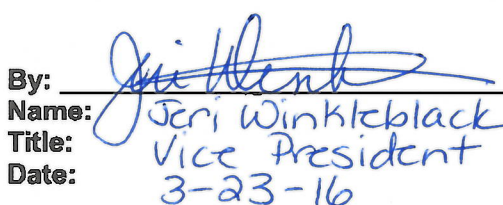 By:
Name: Jeri Winkleblack
Title: Vice President
Date: 3-23-16